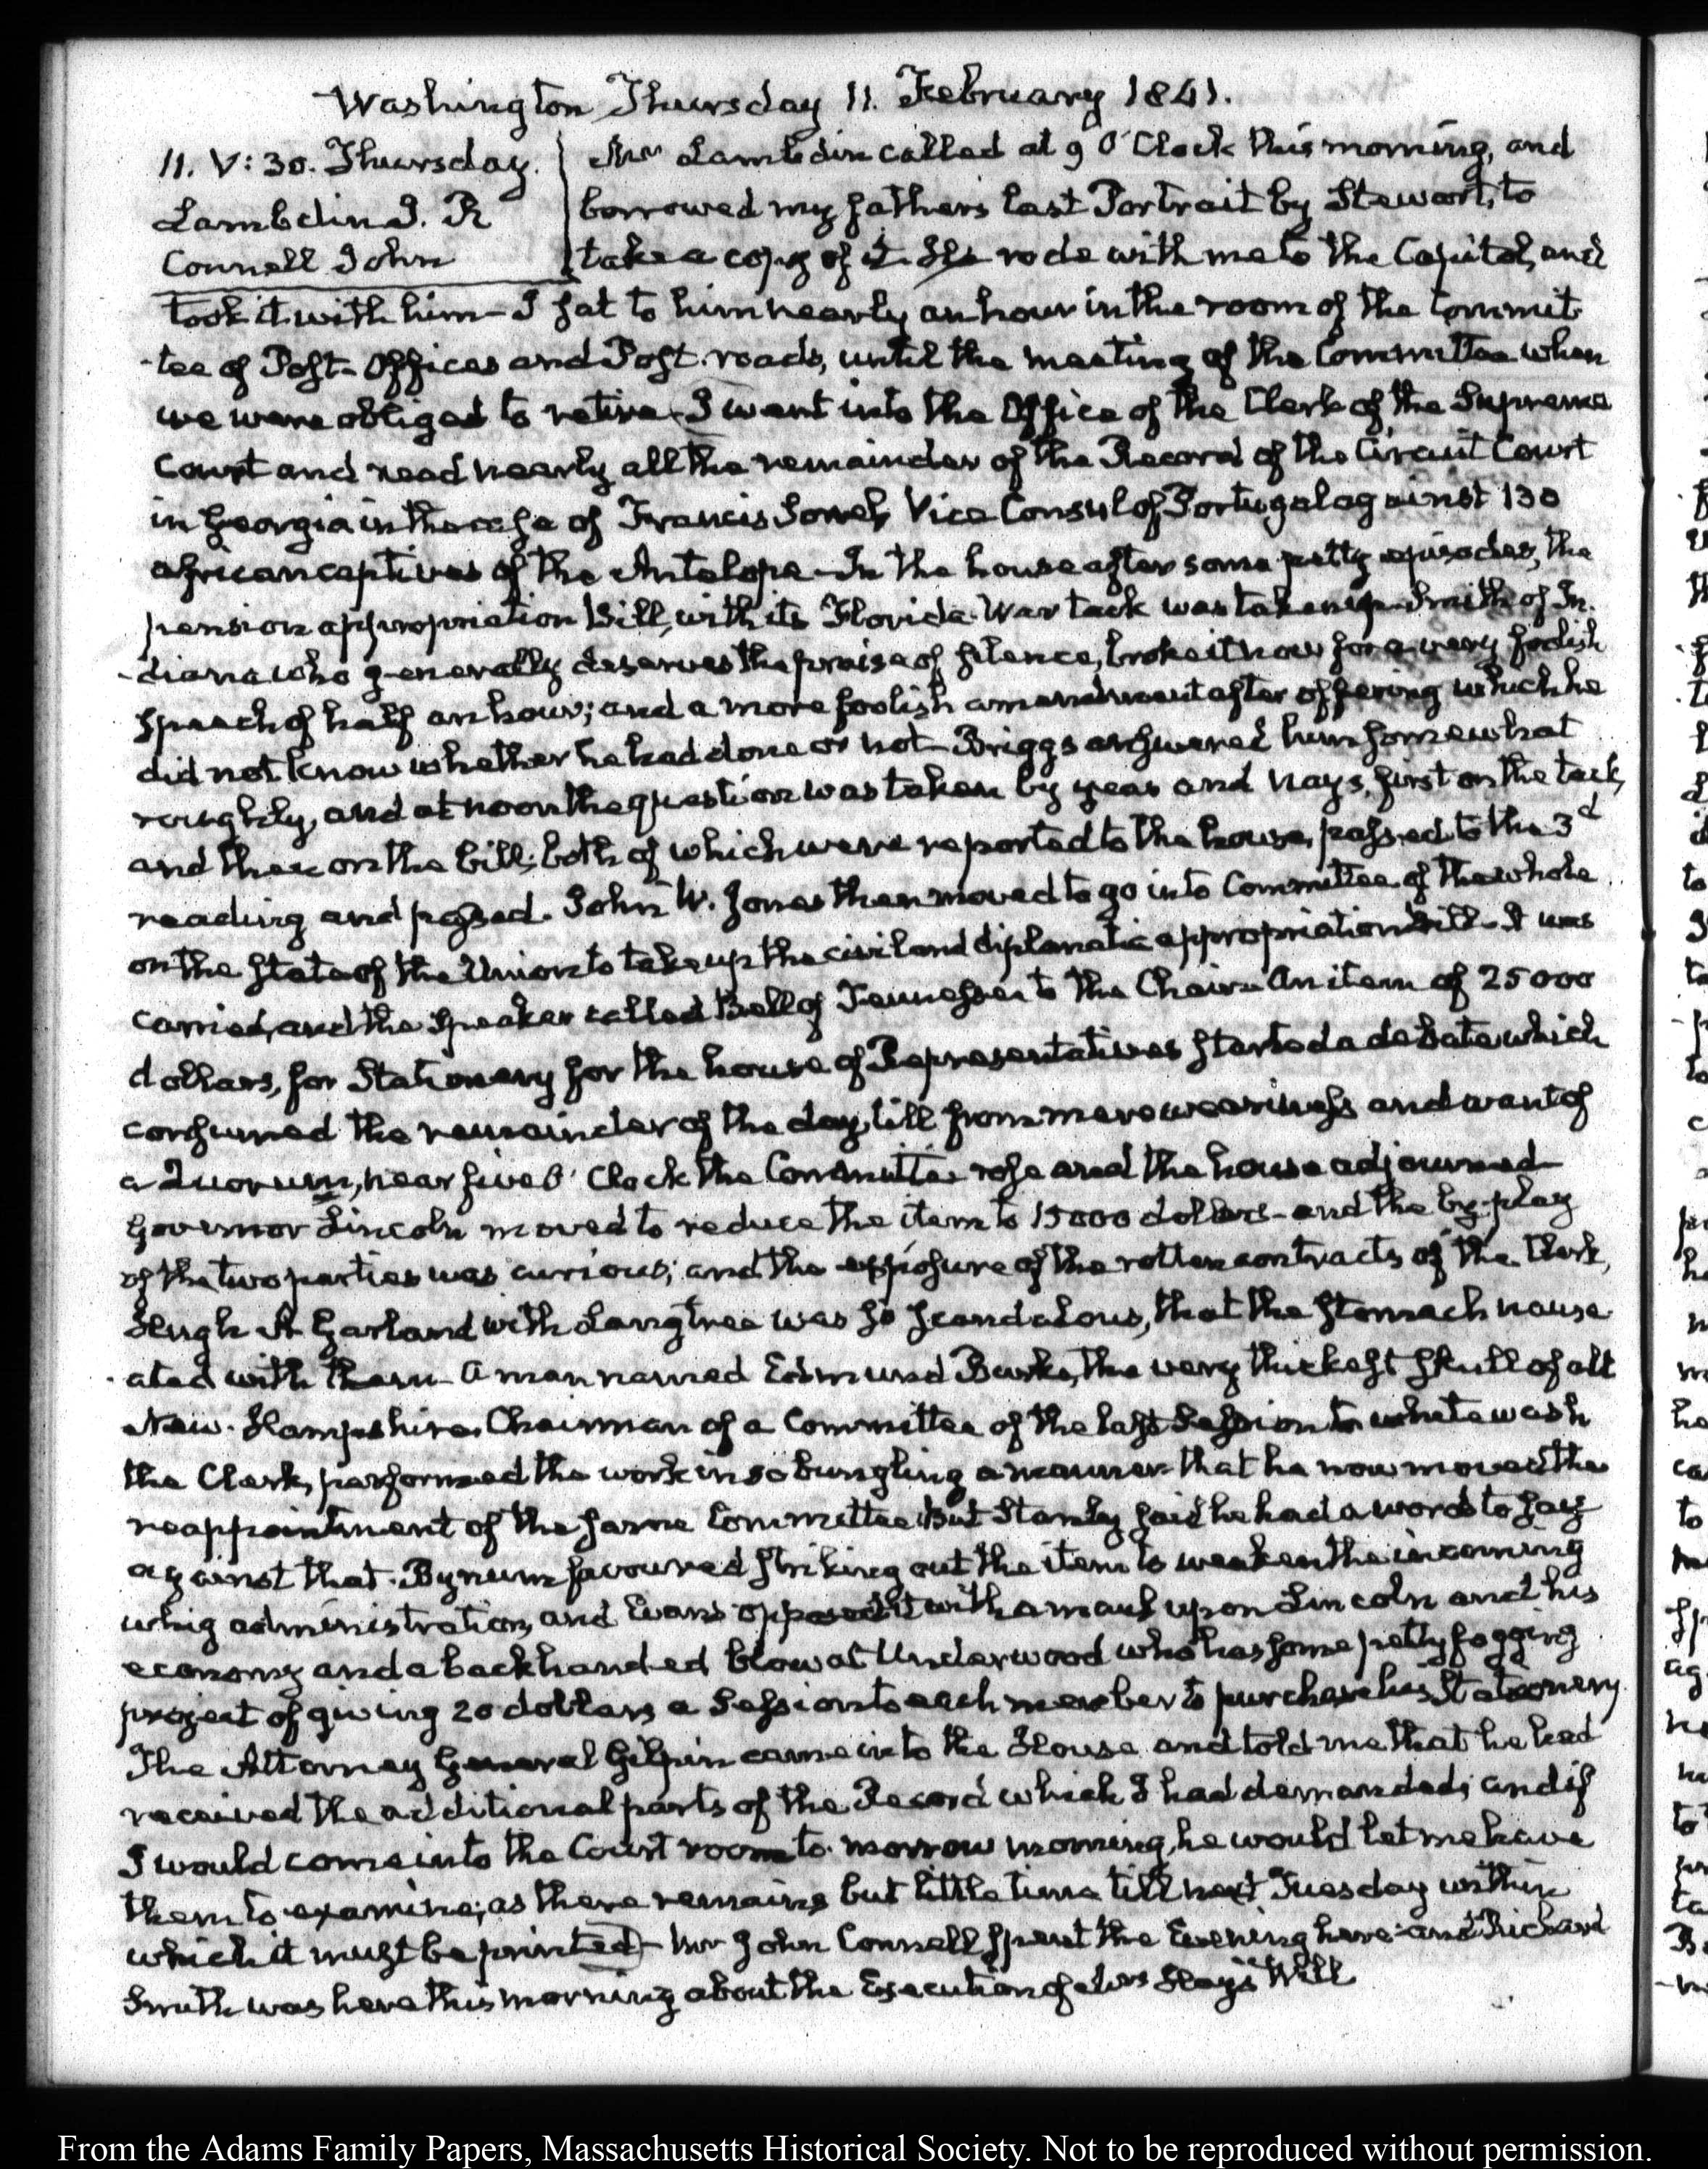 Washington Thursday 11. February 1841.
11. V: 30. Thursday.
Lambdin J. R
Connell John
Mr Lambdin called at 9 O'Clock this morning, and
borrowed my father's last Portrait by Stewart, to
take a copy of it. He rode with me to the Capitol, and
took it with him— I sat to him nearly an hour in the room of the Commit-
-tee of Post-Offices and Post-roads, until the meeting of the Committee when
we were obliged to retire— I went into the Office of the Clerk of the Supreme
Court and read nearly all the remainder of the Record of the Circuit Court
in Georgia in the case of Francis Sorrel, Vice Consul of Portugal against 130
african captives of the Antelope— In the house after some petty episodes, the
pension appropriation Bill, with its Florida War tack was taken up— Smith of In-
-diana who generally deserves the praise of silence, broke it now for a very foolish
speech of half an hour; and a more foolish amendment after offering which he
did not know whether he had done or not— Briggs answered him somewhat
roughly, and at noon the question was taken by yeas and nays, first on the tack,
and then on the bill; both of which were reported to the house, passed to the 3d
reading and passed. John W. Jones then moved to go into Committee of the whole
on the state of the Union to take up the civil and diplomatic appropriation bill— It was
carried, and the Speaker called Bell of Tennessee to the Chair— An item of 25000
dollars, for Stationery for the house of Representatives started a debate which
consumed the remainder of the day, till from mere weariness and want of
a Quorum, near five O'Clock the Committee rose and the house adjourned—
Governor Lincoln moved to reduce the item to 15000 dollars— and the by-play
of the two parties was curious; and the exposure of the rotten contracts of the Clerk,
Hugh A Garland with Langtree was so scandalous, that the stomach nause-
-ated with them— A man named Edmund Burke, the very thickest skull of all
New-Hampshire, Chairman of a Committee of the last Session to white wash
the Clerk, performed the work in so bungling a manner that he now moved the
reappointment of the same Committee. But Stanly said he had a word to say
against that. Bynum favoured striking out the item to weaken the incoming
whig administration, and Evans opposed it with a maul upon Lincoln and his
economy and a backhanded blow at Underwood who has some pettyfogging
project of giving 20 dollars a Session to each member to purchase his Stationery.
The Attorney General Gilpin came into the House and told me that he had
received the additional parts of the Record which I had demanded; and if
I would come into the Court room to-morrow morning, he would let me have
them to examine; as there remains but little time till next Tuesday within
which it must be printed— Mr John Connell spent the Evening here— and Richard
Smith was here this morning about the Execution of Mrs Hay's Will
From the Adams Family Papers, Massachusetts Historical Society. Not to be reproduced without permission.